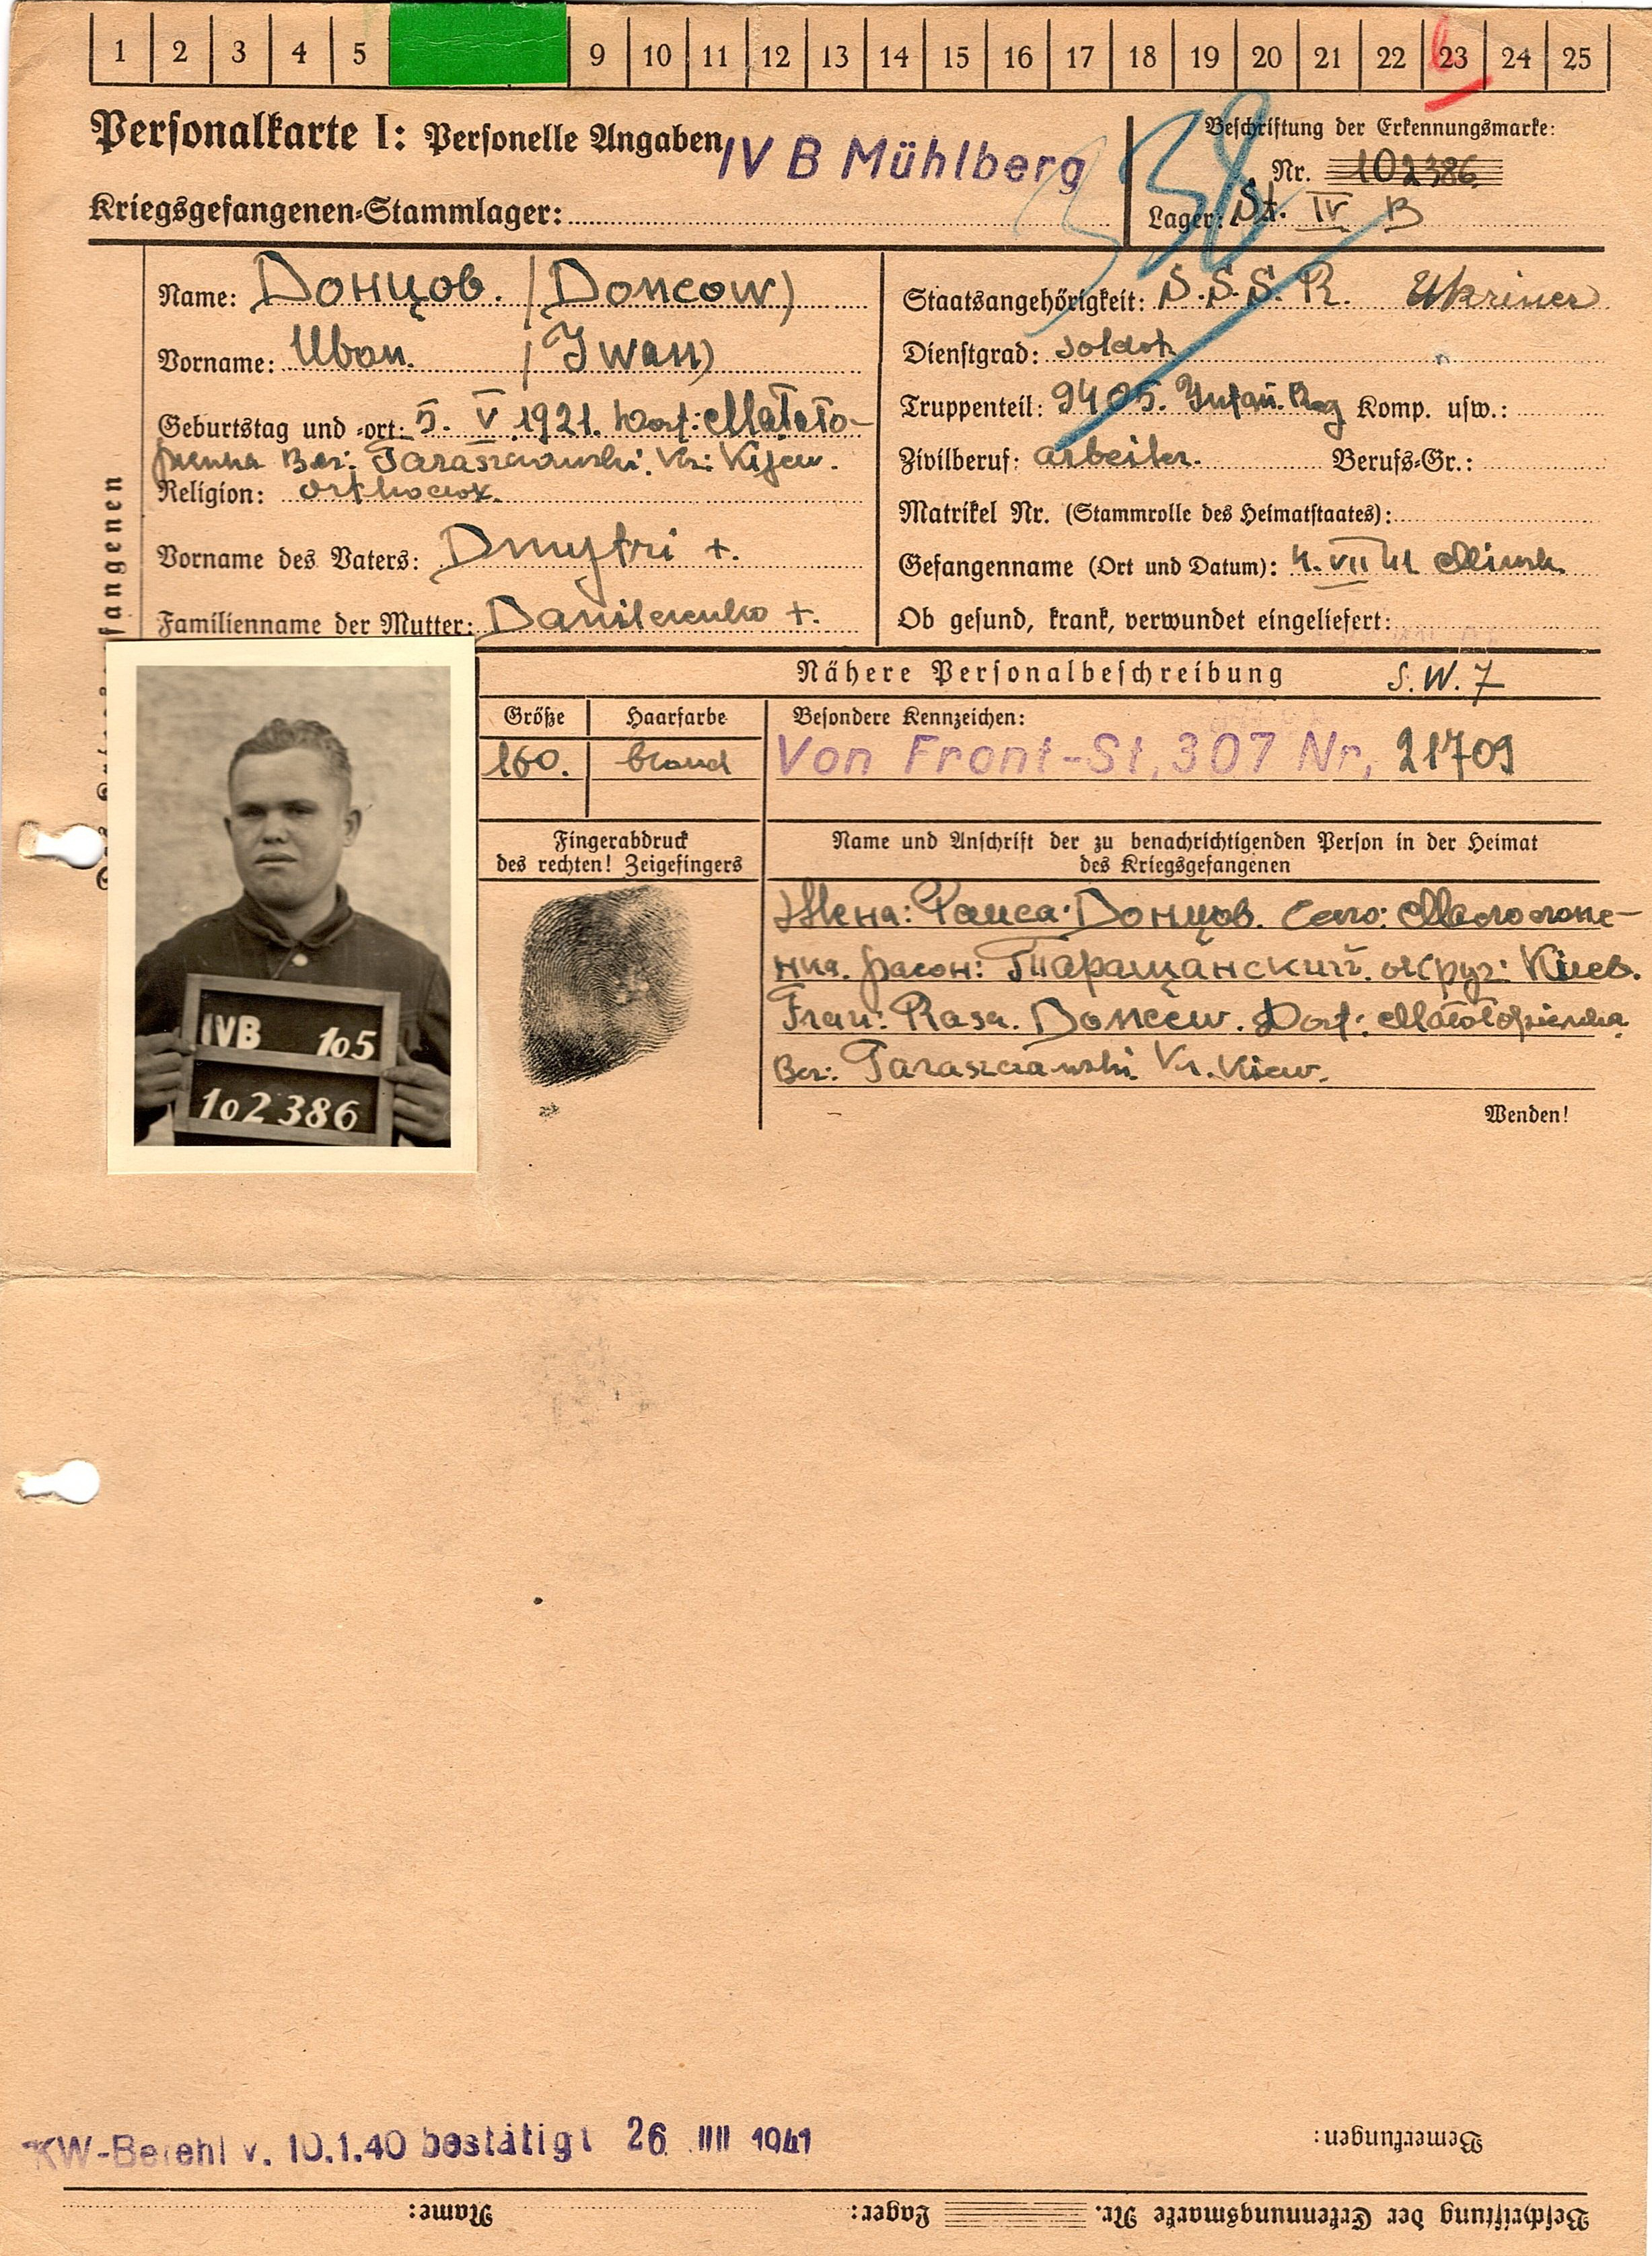 1 2 3 4 5 9 10 11 12 13 14 15 16 17 18 19 20 21 22 23 24 25
6
Personalkarte I: Personelle Angaben
IV B Mühlberg
Kriegsgefangenen-Stammlager:
Beschriftung der Erkennungsmarke:
Nr. 102386
Lager: St. IV B
338
Name: Донцов. (Doncow)
Vorname: Иван. (Iwan)
Geburtstag und -ort: 5. V. 1921. Dorf:
Ber: Kr: Kijew.
Religion: orthodox.
Vorname des Vaters: Dmytri +.
Familienname der Mutter: Danilenko +.
Staatsangehörigkeit: S.S.S.R. Ukrainer
Dienstgrad: Soldat
Truppenteil: 9405. Infan. Reg Komp. usw.:
Zivilberuf: arbeiter. Berufs-Gr.:
Matrikel Nr. (Stammrolle des Heimatstaates):
Gefangennahme (Ort und Datum): 4. VII 41 Minsk.
Ob gesund, krank, verwundet eingeliefert:
fangenen
Nähere Personalbeschreibung S.W.7
Größe Haarfarbe Besondere Kennzeichen:
160. blond Von Front-St. 307 Nr. 21709
Fingerabdruck
des rechten! Zeigefingers
Name und Anschrift der zu benachrichtigenden Person in der Heimat
des Kriegsgefangenen
Жена: Раиса Донцов. Село:
нка. район: Таращанский. округ: Киев.
Frau: Rasa. Doncew. Dorf:
Ber: Kr. Kiew.
Wenden!
IVB 105
102386
KW-Befehl v. 10.1.40 bestätigt 26. 1941
Bemerkungen:
Beschriftung der Erkennungsmarke Nr. Lager: Name: